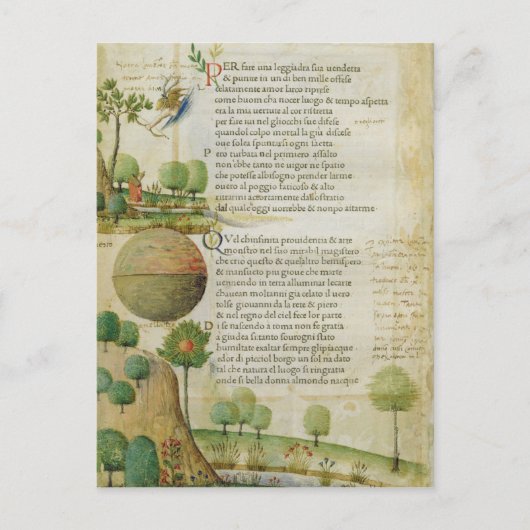 PER fare una leggiadra sua uendetta
& punire in un di ben mille offese
celatamente amor larco riprese
come huom cha nocer luogo & tempo aspetta
era la mia uertute al cor ristretta
per fare iui nel gliocchi sue difese
quandol colpo mortal la giu discese
oue solea spuntarsi ogni saetta
Pero turbata nel primiero assalto
non ebbe tanto ne uigor ne spatio
che potesse albisogno prender larme
oueto al poggio faticoso & alto
ritrarmi accortamente dallo stratio
dal quale oggi uorrebbe & non po aitarme
QVel chinfinita prouidentia & arte
monstro nel suo mirabil magistero
che crio questo & quelaltro hemispero
& mansueto piu gioue che marte
uenendo in terra alluminar lecarte
chauean moltanni gia celato il uero
tolse giouanni da la rete & piero
& nel regno del ciel fece lor parte
Di se nascendo a roma non fe gratia
a giudea si tanto sourogni stato
humiltate exaltar sempre gli piacque
&dor di picciol borgo un sol na dato
tal che natura el luogo si ringratia
onde si bella donna almondo nacque